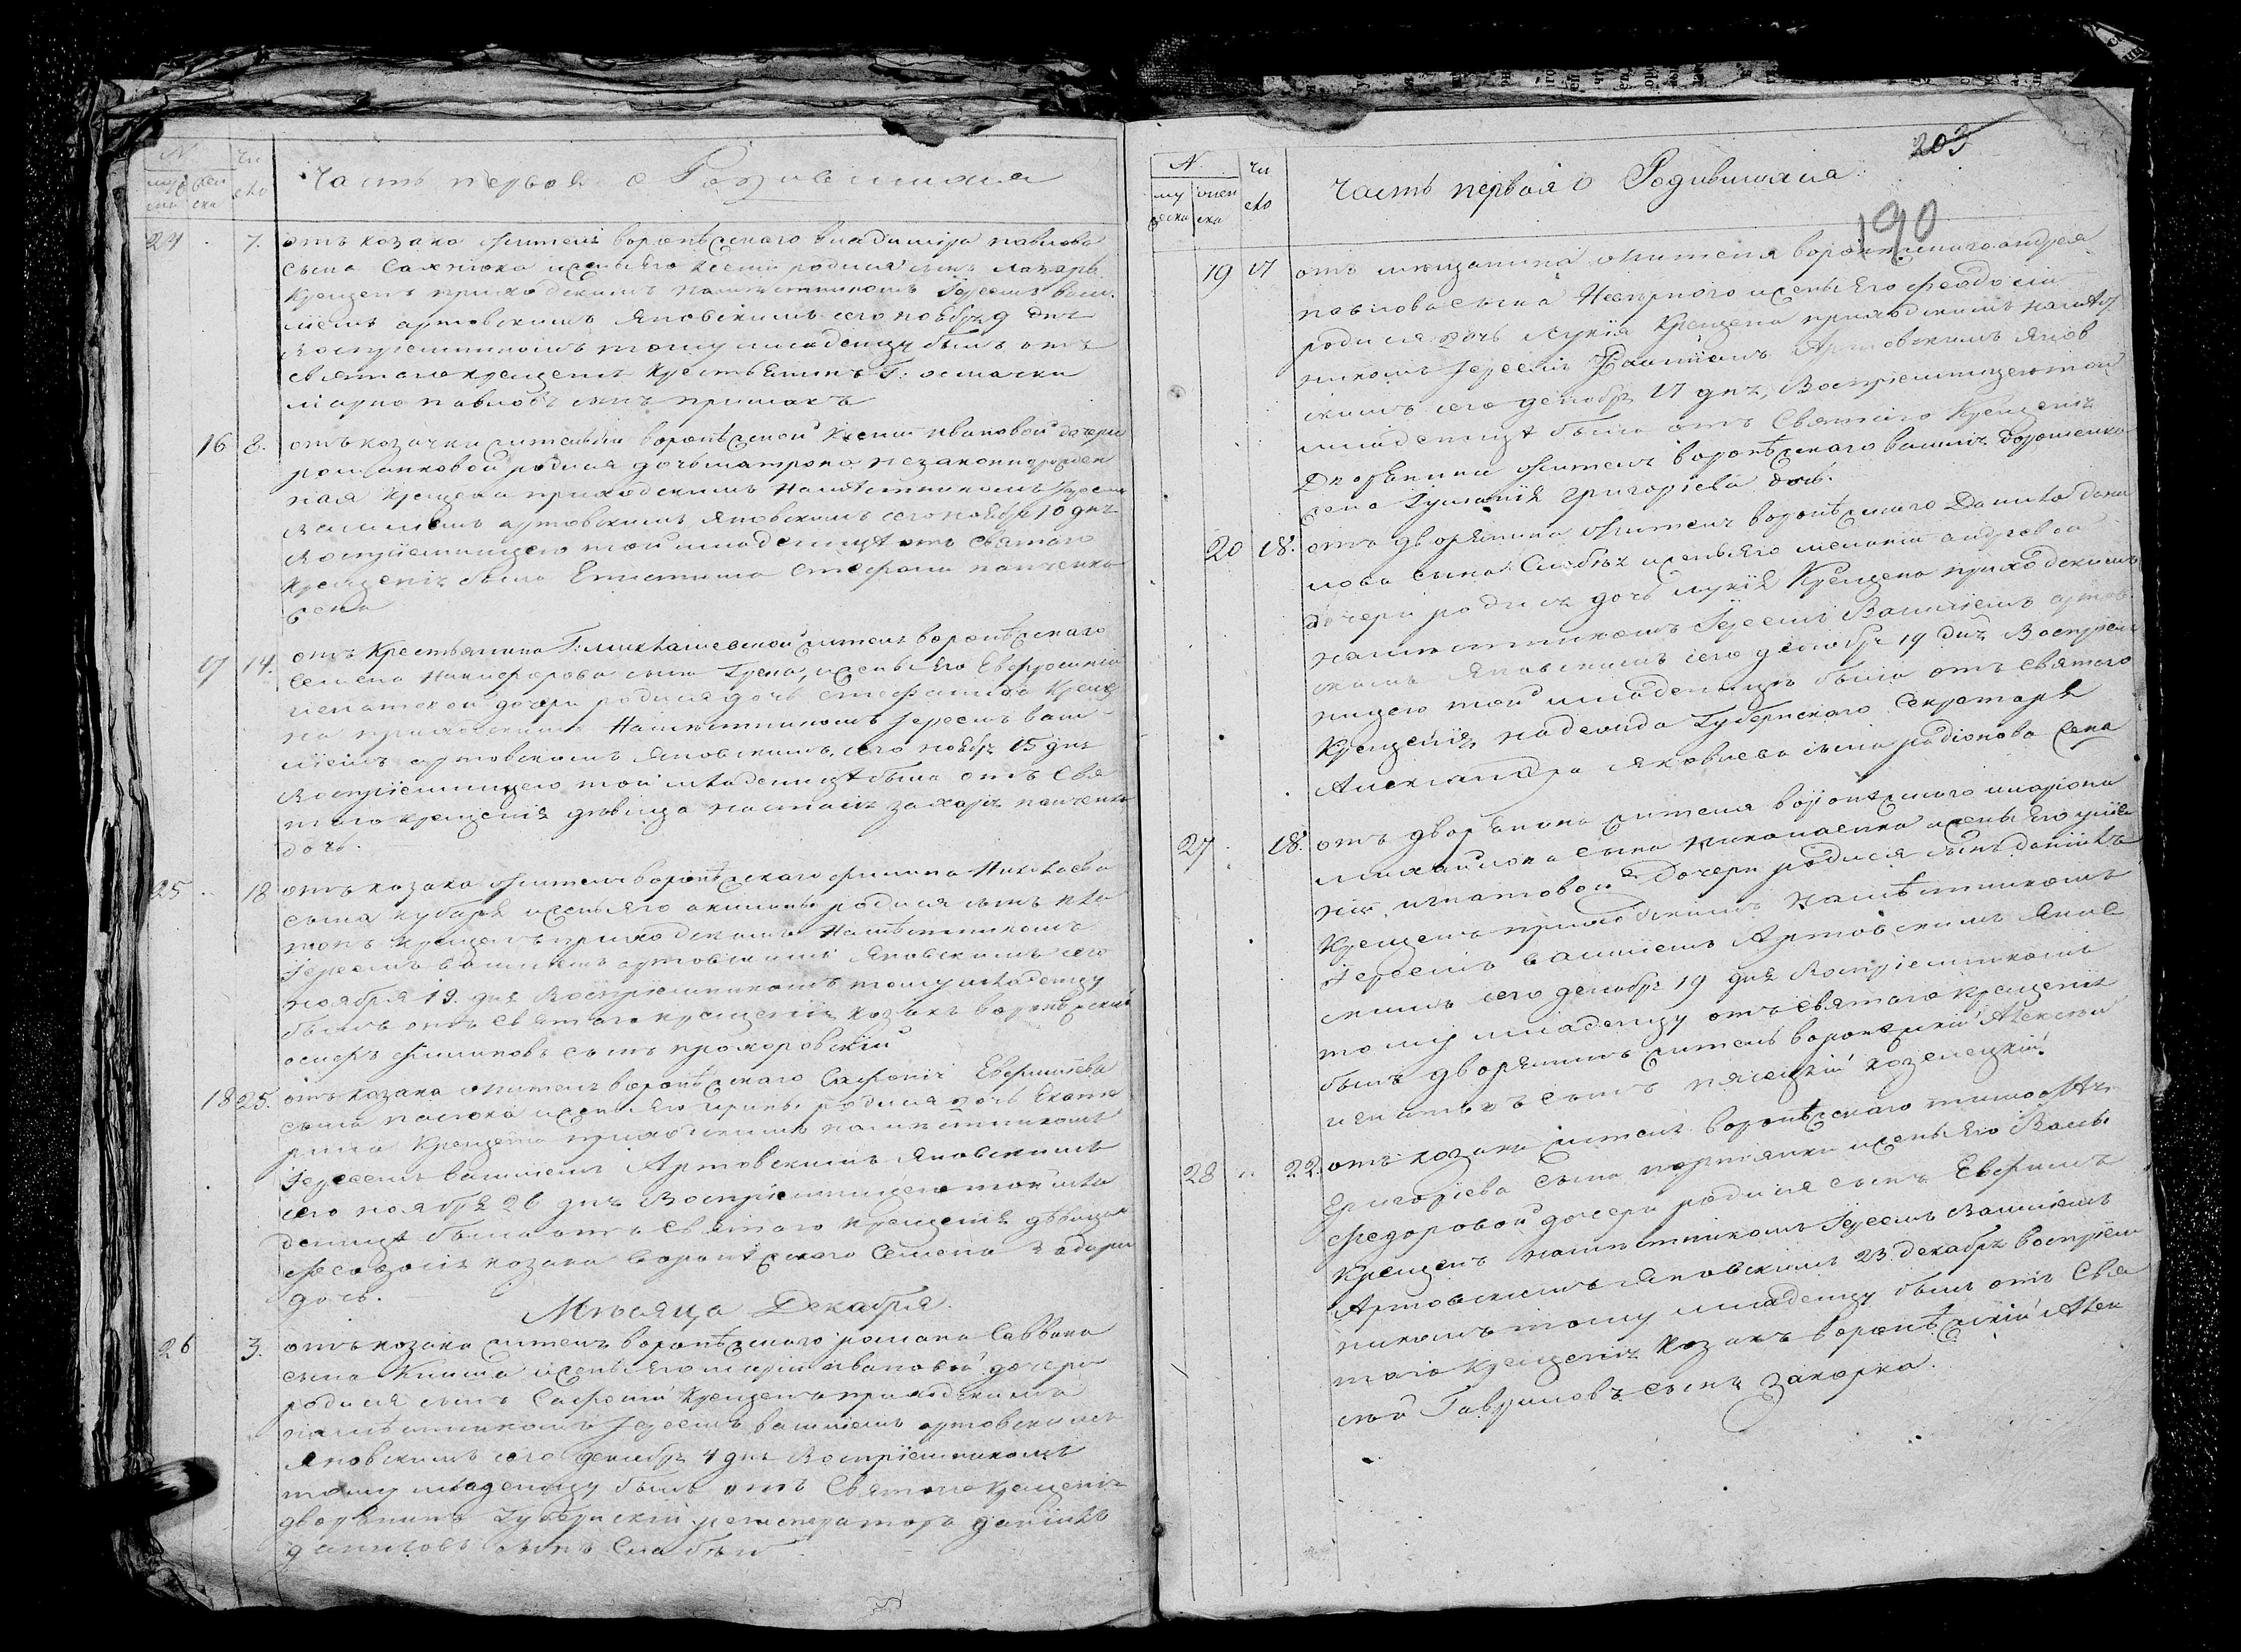 N
чи
сло
муж
ска
жен
ска
Часть первая о Родившихся
24 7. отъ козака жителя воронѣжскаго владиміра павлова
сына Сахнюка и жены Его Ксеніи родился сынъ лазарь
Крещенъ приходскимъ намѣстникомъ Іереемъ васи
ліемъ артовскимъ Яновскимъ сего ноября 9 дня
воспріемникомъ тому младенцу былъ отъ
святаго крещенія крестьянинъ Г: осмачки
марко павловъ сынъ примакъ
16 8. отъ козачки жителки воронѣжской Ксеніи Ивановой дочери
романковой родися дочь матрона незаконнорожден
ная Крещена приходскимъ намѣстникомъ Іереемъ
василіемъ артовскимъ Яновскимъ сего ноября 10 дня
воспріемницею той младеницѣ отъ святаго
Крещенія была Епистима Стефана панченка
жена
17 14. отъ Крестьянина Г: миклашевской жителя воронѣжскаго
Семена Никифорова сына Грека, и жены Его Евфросиніи
игнатовой дочери родися дочь стефанида Креще
на приходскимъ Намѣстникомъ Іереемъ васи
ліемъ артовскимъ Яновскимъ сего ноября 15 дня
воспріемницею той младеницѣ была отъ Свя
таго крещенія дѣвица настасія захарія панченка
дочь.
25 18 отъ козака жителя воронѣжскаго филипа Николаева
сына кубаря и жены Его акилины родился сынъ пла
тонъ Крещенъ приходскимъ Намѣстникомъ
Іереемъ василіемъ артовскимъ Яновскимъ сего
ноября 19. дня воспріемникомъ тому младенцу
былъ отъ святаго крещенія козакъ воронѣжскій
осифъ филиповъ сынъ прохоровскій
18 25. отъ козака жителя воронѣжскаго Софронія Евфиміева
сына пасюка и жены Его ирины родися дочь Екате
рина Крещена приходскимъ намѣстникомъ
Іереемъ василіемъ Артовскимъ Яновскимъ
сего ноября 26 дня воспріемницею той мла
деницѣ была отъ святаго крещенія дѣвица
феодосія козака воронѣжскаго Семена
дочь.
Мѣсяца Декабря
26 3. отъ козака жителя воронѣжскаго романа Саввина
сына Книша и жены Его маріи ивановой дочери
родился сынъ Софоній Крещенъ приходскимъ
намѣстникомъ Іереемъ василіемъ артовскимъ
Яновскимъ сего декабря 4 дня воспріемникомъ
тому младенцу былъ отъ Святаго крещенія
дворянинъ Губернскій регистраторъ даніилъ
даниловъ сынъ Слабѣй
203
190
N
чи
сло
му
жска
жен
ска
часть первая о Родившихся
19 17 отъ мѣщанина жителя воронѣжскаго андрея
павлова сына и жены Его феодосіи
родися дочь лукія Крещена приходскимъ намѣст
никомъ Іереемъ Василіемъ Артовскимъ Янов
скимъ сего декабря 17 дня, воспріемницею той
младеницѣ была отъ Святаго Крещенія
Дворянина жителя воронѣжскаго василія дорошенка
жена Іуліанія григоріева дочь.
20 18. отъ дворянина жителя воронѣжскаго Данила дани
лова сына Слабѣя и жены Его меланіи андреевой
дочери родися дочь лукія Крещена приходскимъ
намѣстникомъ Іереемъ Василіемъ артов
скимъ Яновскимъ сего декабря 19 дня воспріем
ницею той младеницѣ была отъ святаго
Крещенія надежда Губернскаго Секретаря
Александра яковлева сына радіонова жена
27 18. отъ дворянина жителя воронѣжскаго иларіона
михайлова сына николаенка и жены Его уліа
ніи игнатовой дочери родился сынъ даніилъ
Крещенъ приходскимъ намѣстникомъ
Іереемъ василіемъ Артовскимъ Янов
скимъ сего декабря 19 дня воспріемникомъ
тому младенцу отъ святаго крещенія
былъ дворянинъ житель воронѣжскій Алексѣй
игнатьевъ сынъ козелецкій.
28 22. отъ козака жителя воронѣжскаго тимофѣя
Григоріева сына портянки и жены Его Васы
федоровой дочери родился сынъ Евфимъ
Крещенъ намѣстникомъ Іереемъ василіемъ
Артовскимъ Яновскимъ 23 декабря воспріем
никомъ тому младенцу былъ отъ Свя
таго Крещенія козакъ воронѣжскій Алек
сѣй Гавриловъ сынъ Захорка.